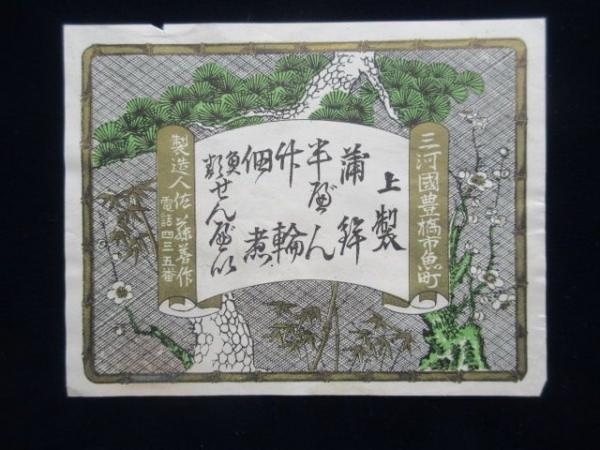 三河國豊橋市魚町
上製
蒲鉾
半べん
竹輪
佃煮
魚類せんべい
製造人 佐藤善作
電話四三五番